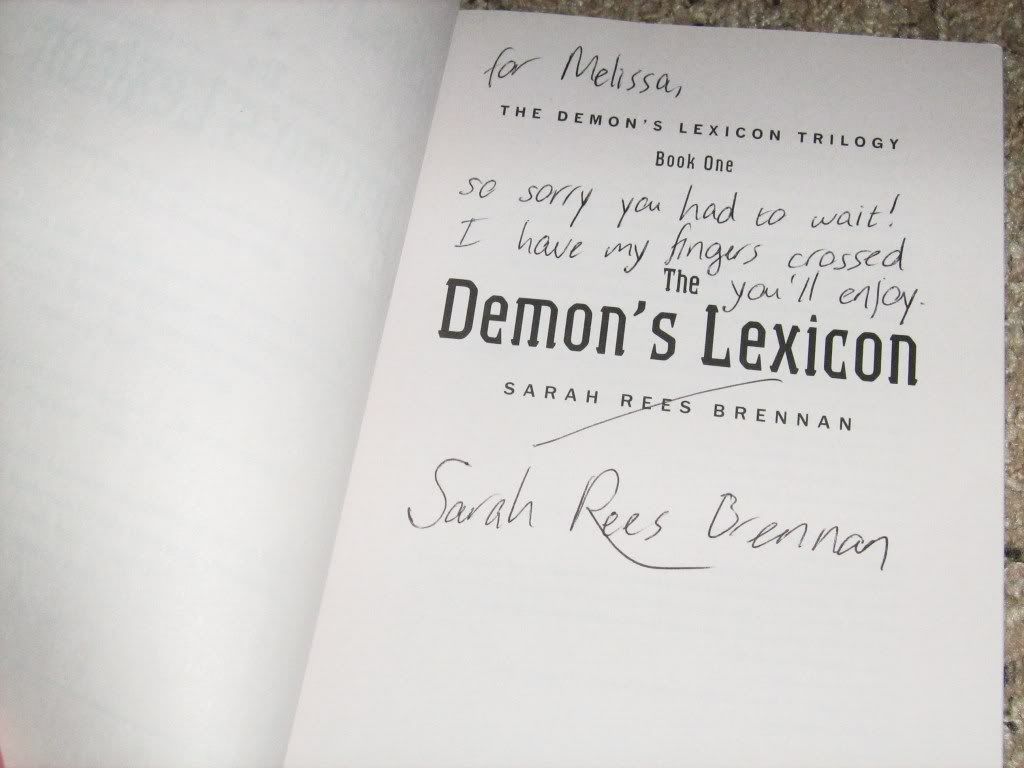 for Melissa,
THE DEMON'S LEXICON TRILOGY
Book One
so sorry you had to wait!
I have my fingers crossed
you'll enjoy.
The
Demon's Lexicon
SARAH REES BRENNAN
Sarah Rees Brennan